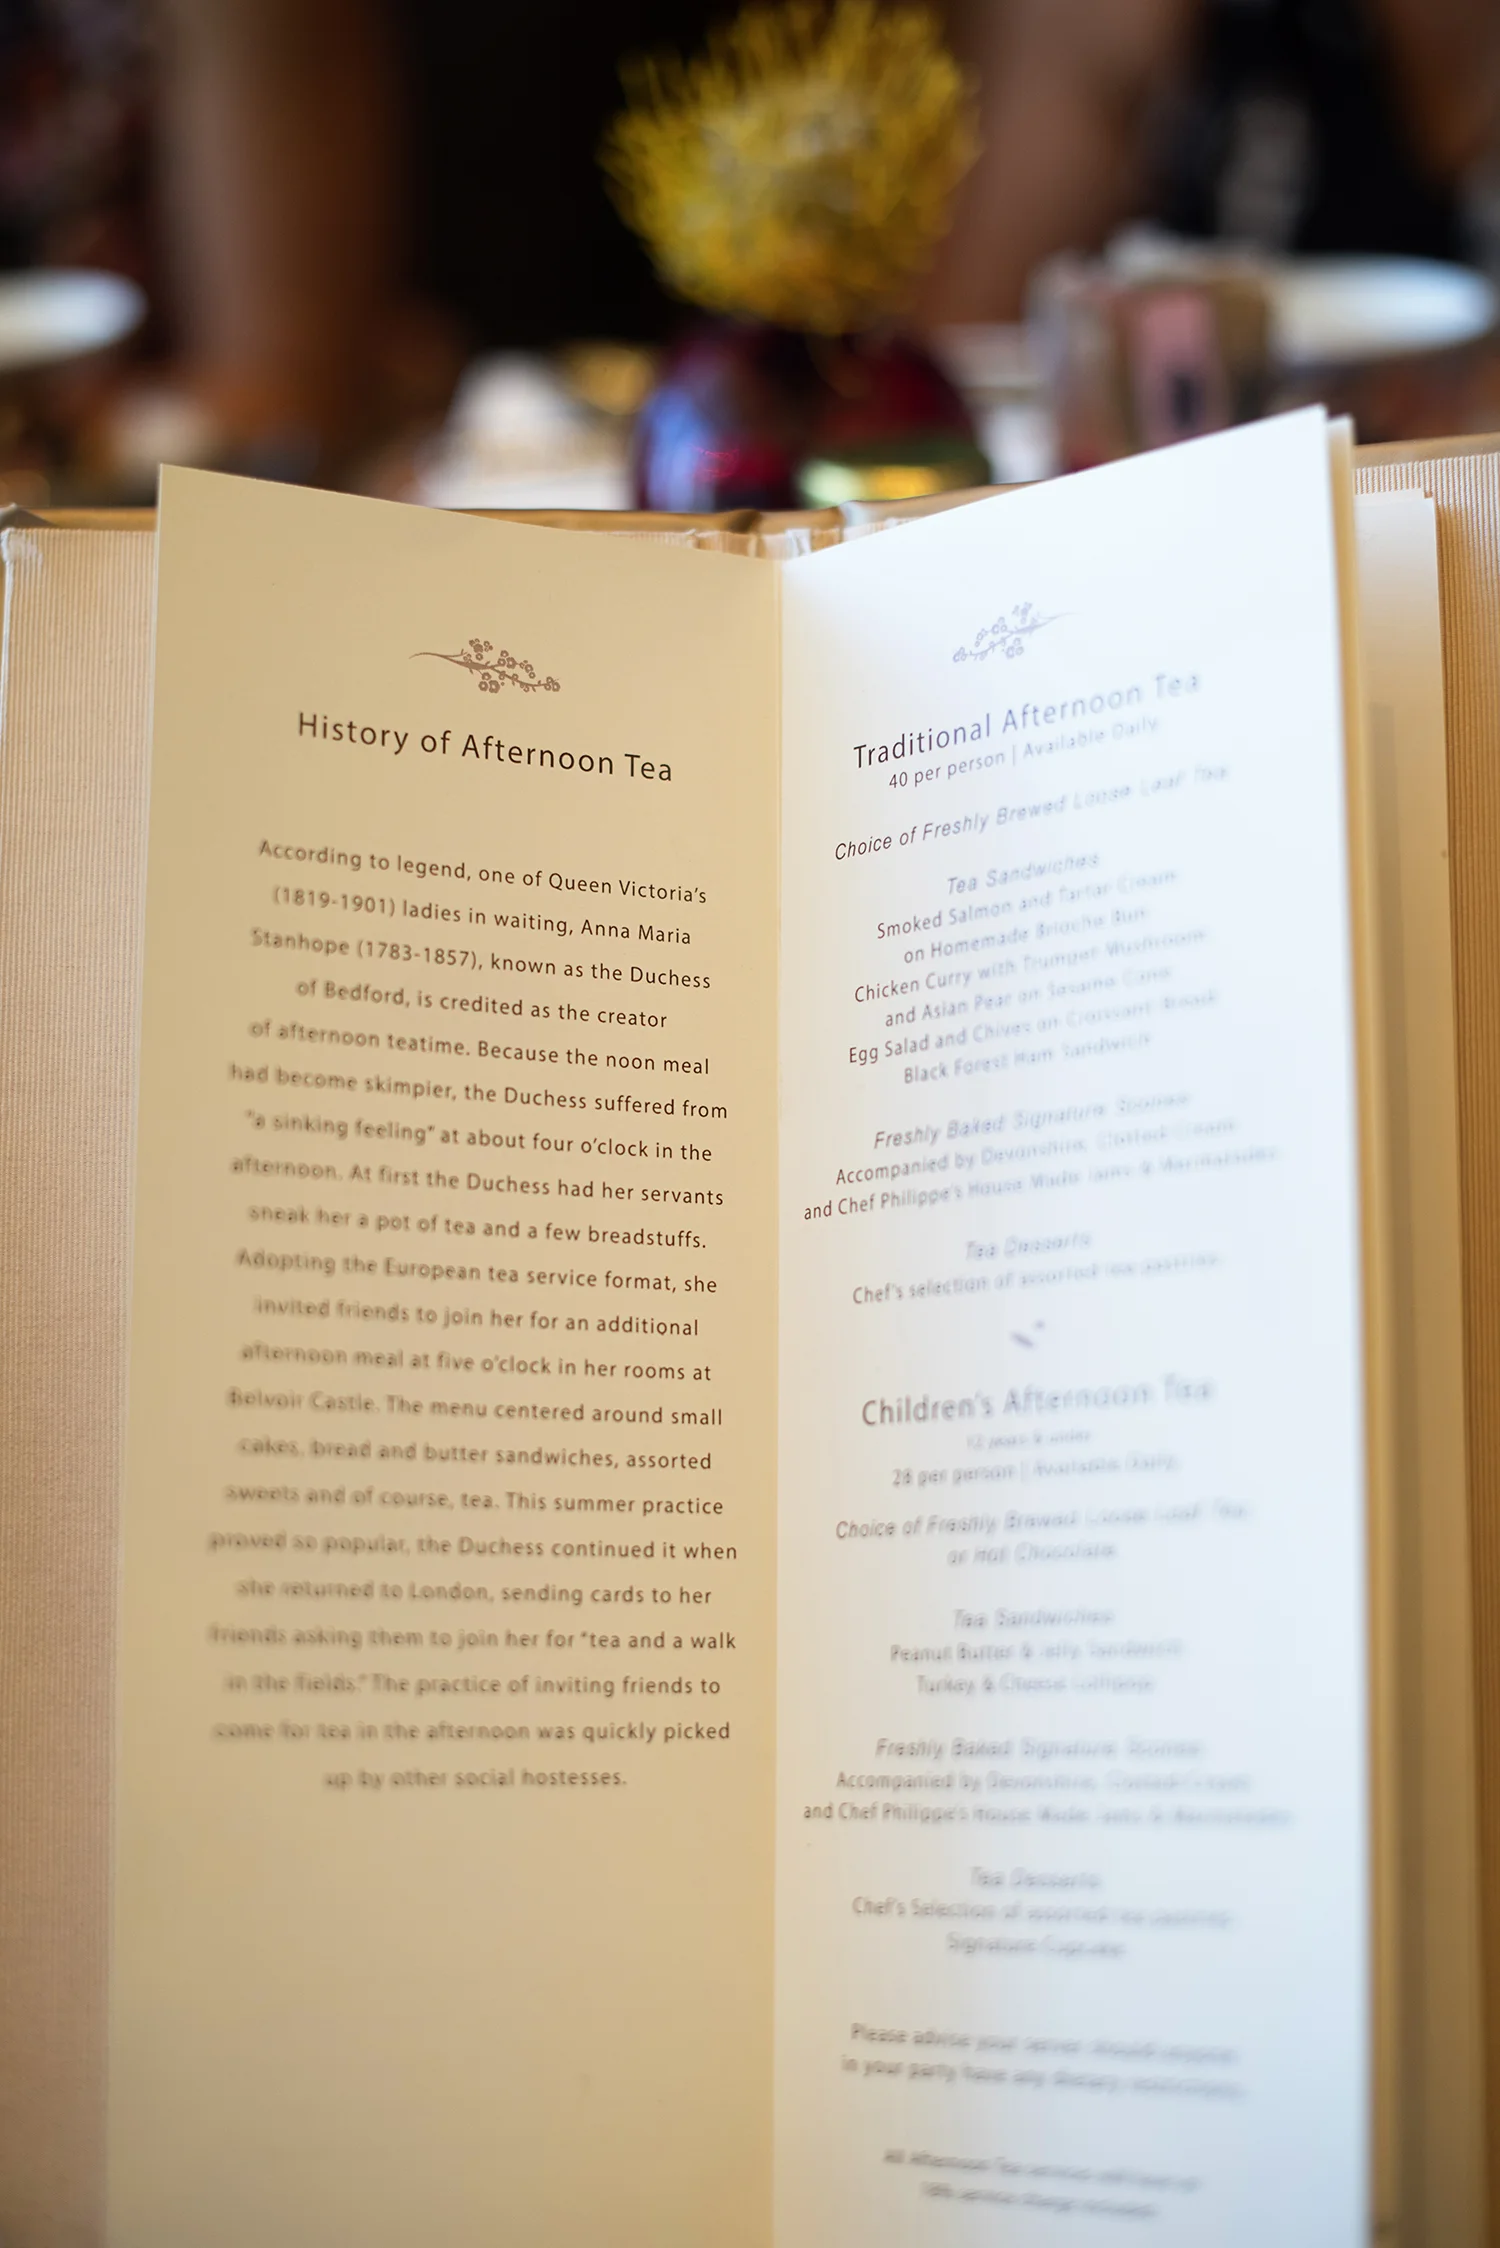 History of Afternoon Tea
According to legend, one of Queen Victoria's
(1819-1901) ladies in waiting, Anna Maria
Stanhope (1783-1857), known as the Duchess
of Bedford, is credited as the creator
of afternoon teatime. Because the noon meal
had become skimpier, the Duchess suffered from
"a sinking feeling" at about four o'clock in the
afternoon. At first the Duchess had her servants
sneak her a pot of tea and a few breadstuffs.
Adopting the European tea service format, she
invited friends to join her for an additional
afternoon meal at five o'clock in her rooms at
Belvoir Castle. The menu centered around small
cakes, bread and butter sandwiches, assorted
sweets and of course, tea. This summer practice
proved so popular, the Duchess continued it when
she returned to London, sending cards to her
friends asking them to join her for "tea and a walk
in the fields." The practice of inviting friends to
come for tea in the afternoon was quickly picked
up by other social hostesses.
Traditional Afternoon Tea
40 per person | Available Daily
Choice of Freshly Brewed Loose Leaf Tea
Tea Sandwiches
Smoked Salmon and Tartar Cream
on Homemade Brioche Bun
Chicken Curry with Trumpet Mushroom
and Asian Pear on Sesame Cone
Egg Salad and Chives on Croissant Bread
Black Forest Ham Sandwich
Freshly Baked Signature Scones
Accompanied by Devonshire, Clotted Cream
and Chef Philippe's House Made Jams & Marmalades
Tea Desserts
Chef's selection of assorted tea pastries
Children's Afternoon Tea
12 years & under
28 per person | Available Daily
Choice of Freshly Brewed Loose Leaf Tea
or Hot Chocolate
Tea Sandwiches
Peanut Butter & Jelly Sandwich
Turkey & Cheese Lollipop
Freshly Baked Signature Scones
Accompanied by Devonshire, Clotted Cream
and Chef Philippe's House Made Jams & Marmalades
Tea Desserts
Chef's Selection of assorted tea pastries
Signature Cupcake
Please advise your server should anyone
in your party have any dietary restrictions
All Afternoon Tea services will have an
18% service charge